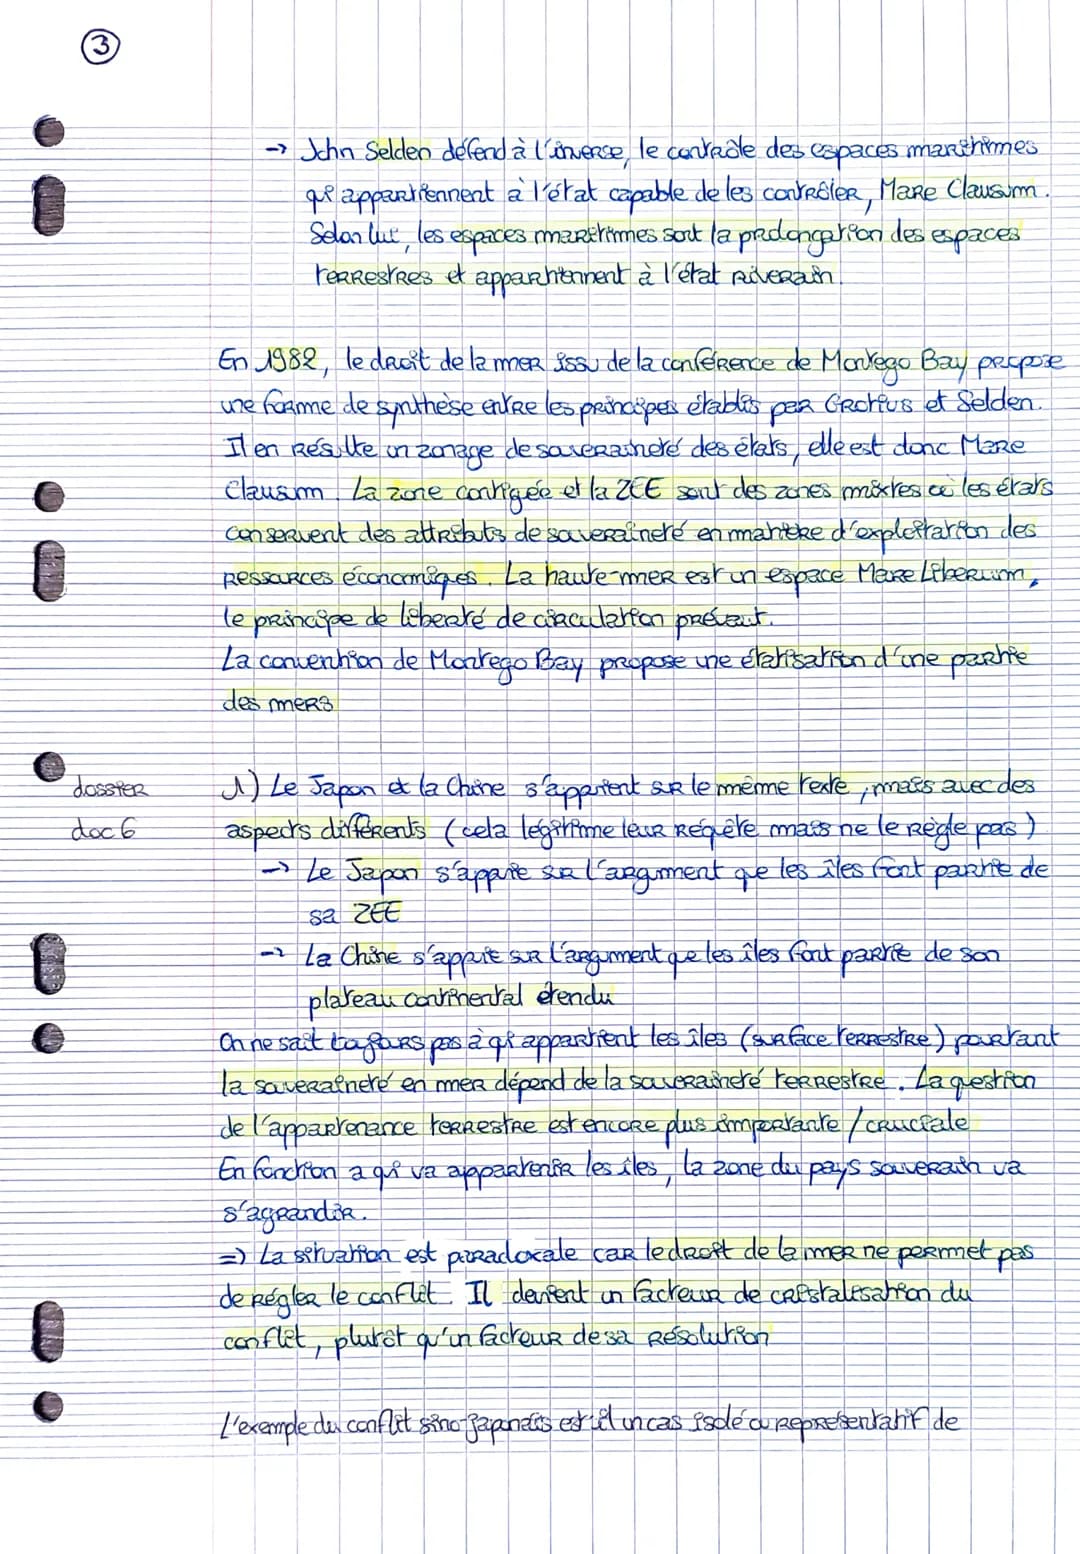 3
→ John Selden défend à l'inverse, le contrôle des espaces marithimes
qui appartiennent à l'état capable de les contrôler, Mare Clausum.
Selon lui, les espaces maritimes sont la prolongation des espaces
terrestres et appartiennent à l'état riverain.
En 1982, le droit de la mer issu de la conférence de Montego Bay propose
une forme de synthèse entre les principes établis par Grotius et Selden.
Il en résulte un zonage de souveraineté des états, elle est donc Mare
Clausum. La zone contigée et la ZEE sont des zones mixtes où les états
conservent des attributs de souveraineté en matière d'exploitation des
ressources économiques. La haute-mer est un espace Mare Liberum,
le principe de liberté de circulation prévaut.
La convention de Montego Bay propose une étatisation d'une partie
des mers
dossier
doc 6
1) Le Japon et la Chine s'appuient sur le même texte, mais avec des
aspects différents (cela légitime leur requête mais ne le règle pas)
→ Le Japon s'appuie sur l'argument que les îles font partie de
sa ZEE
→ La Chine s'appuie sur l'argument que les îles font partie de son
plateau continental étendu
On ne sait toujours pas à qui appartient les îles (surface terrestre) pourtant
la souveraineté en mer dépend de la souveraineté terrestre. La question
de l'appartenance terrestre est encore plus importante / cruciale
En fonction a qui va appartenir les îles, la zone du pays souverain va
s'agrandir.
=> La situation est paradoxale car le droit de la mer ne permet pas
de régler le conflit. Il devient un facteur de cristalisation du
conflit, plutôt qu'un facteur de sa résolution
L'exemple du conflit sino-japonais est-il un cas isolé ou représentatif de